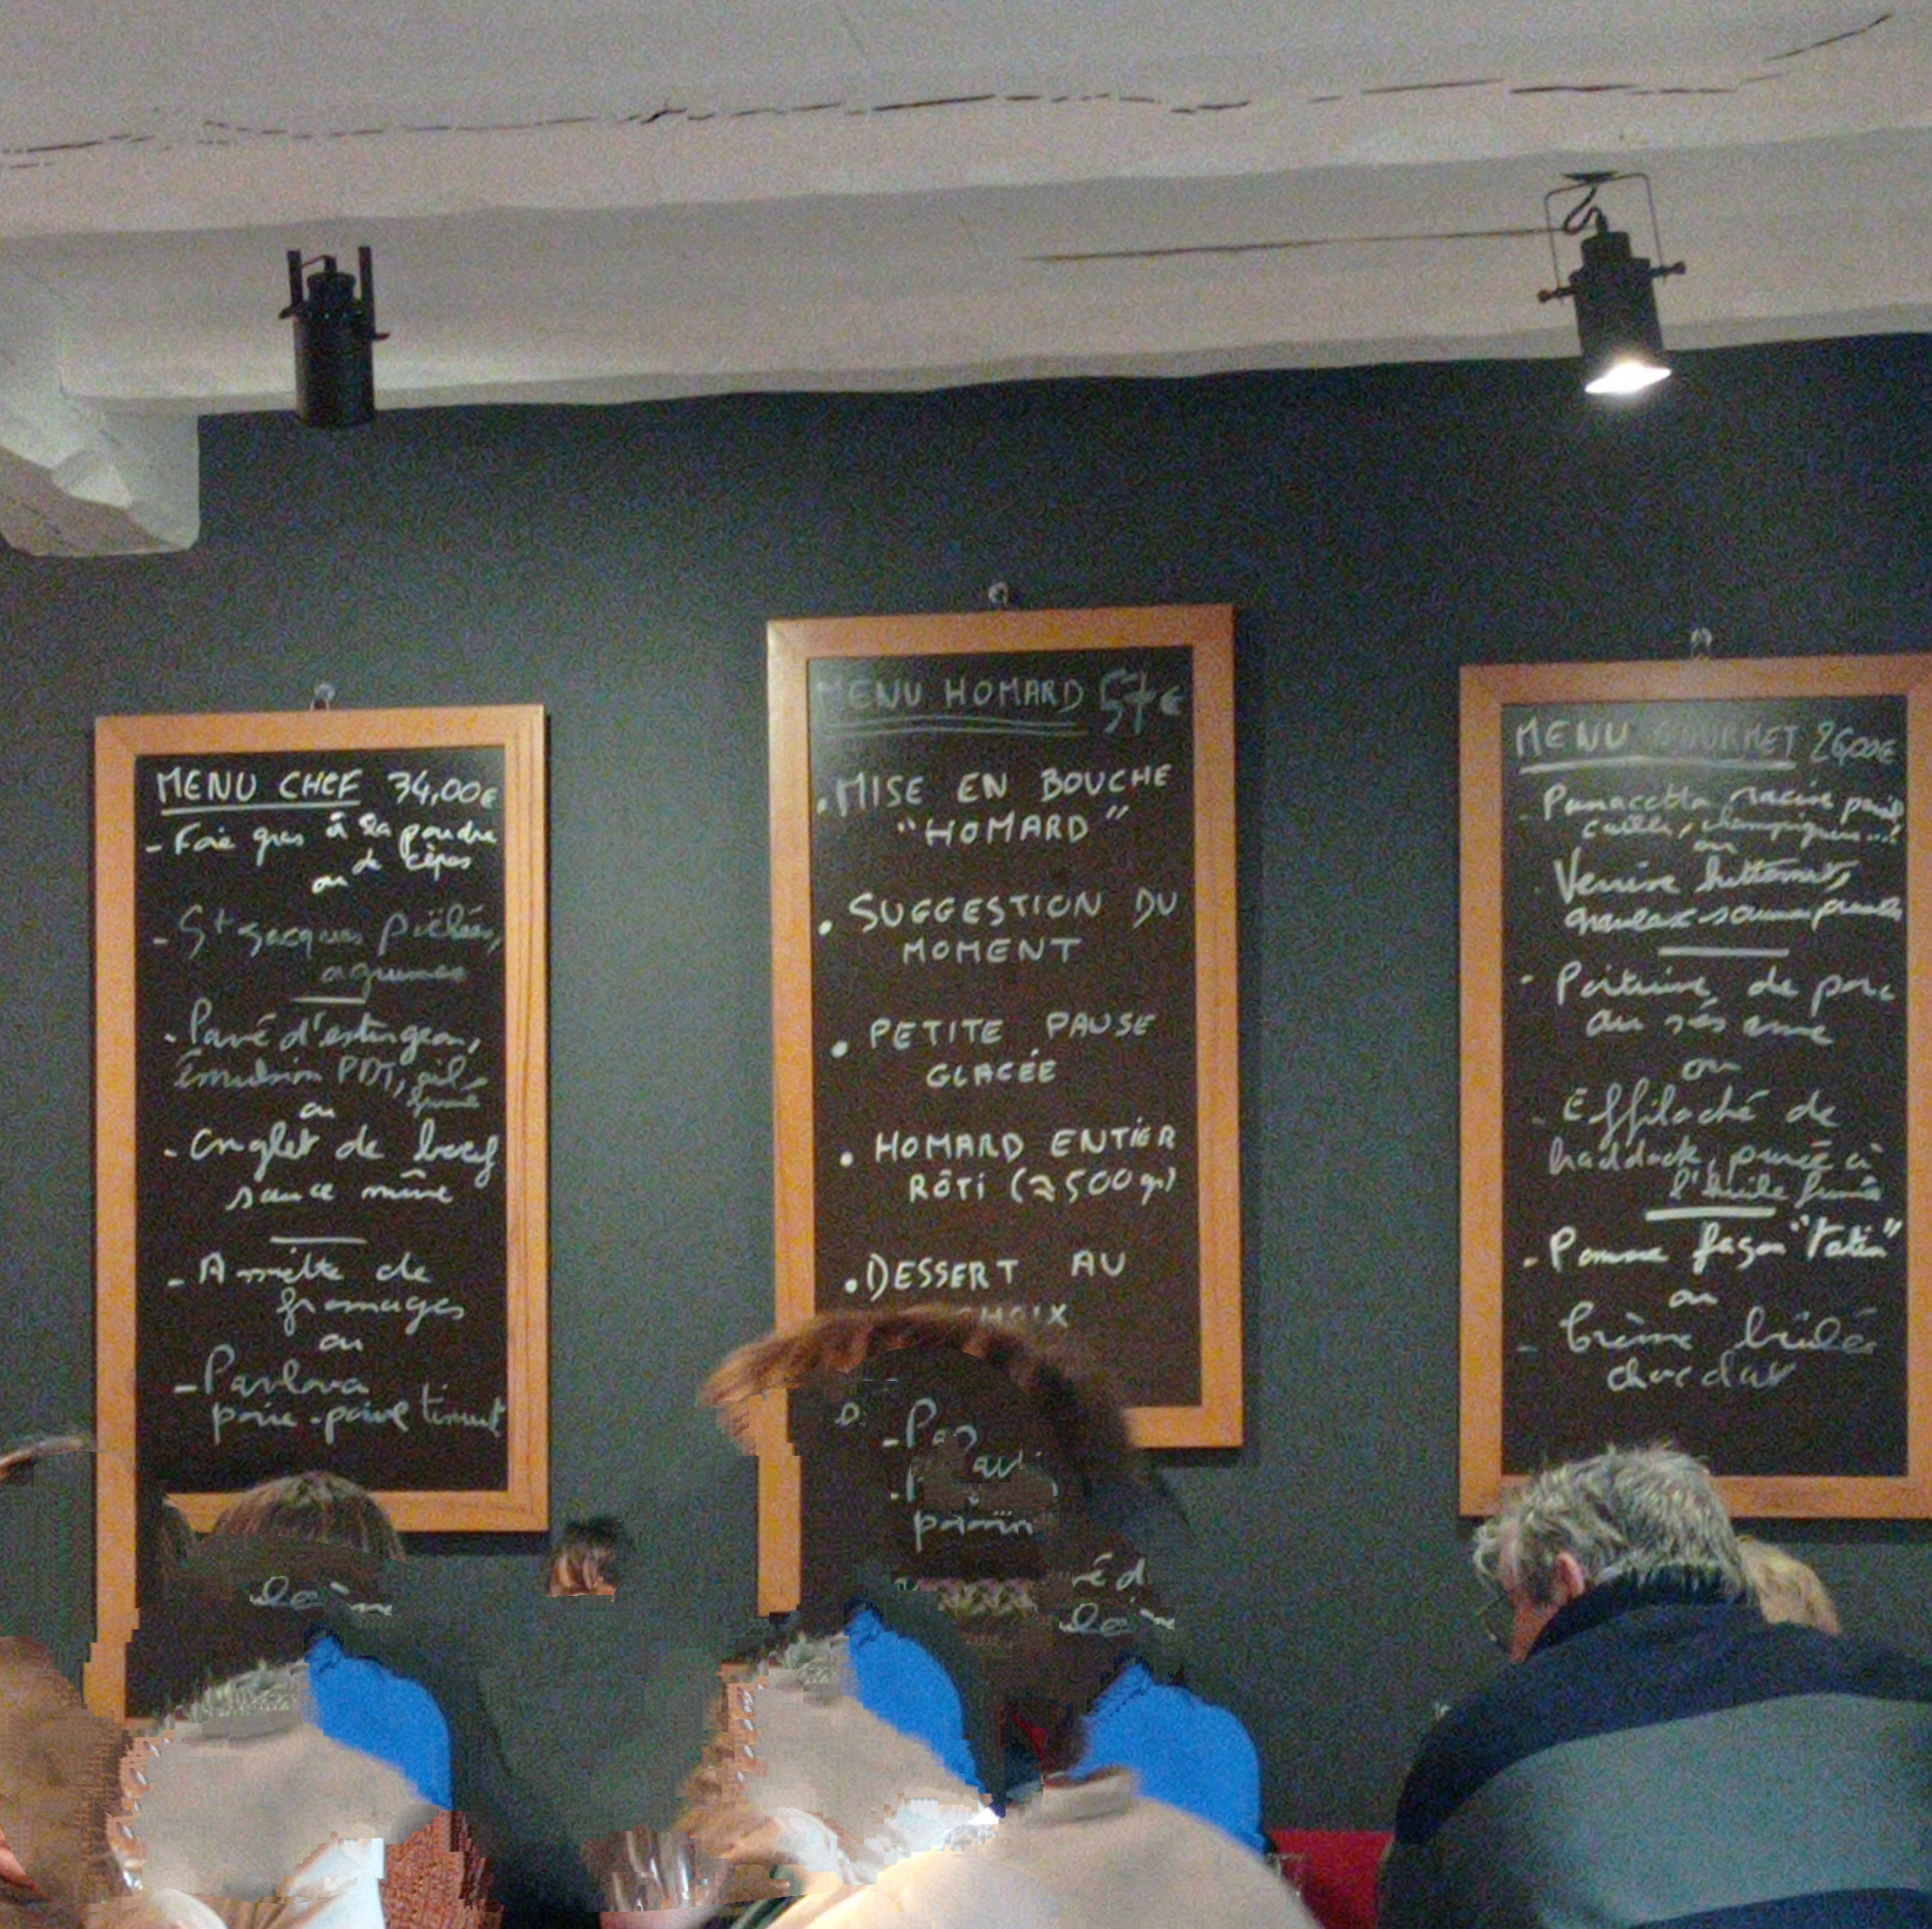 MENU CHEF 34,00€
- Foie gras à la poudre
de cèpes
ou
- St Jacques poêlées,
agrumes
- Pavé d'esturgeon,
Emulsion PDT, ail
fumé
ou
- Onglet de boeuf
sauce
- Assiette de
fromages
ou
- Pavlova
poire - poivre timut
MENU HOMARD 57€
• MISE EN BOUCHE
"HOMARD"
• SUGGESTION DU
MOMENT
• PETITE PAUSE
GLACÉE
• HOMARD ENTIER
RÔTI (≈500 gr)
• DESSERT AU
CHOIX
MENU GOURMET 26,00€
- Panacotta racine persil
caille, champignons...!
ou
Verrine butternut,
- Poitrine de porc
au sésame
ou
- Effiloché de
haddock, purée à
l'huile fumée
- Pomme façon "Tatin"
ou
- Crème brûlée
chocolat